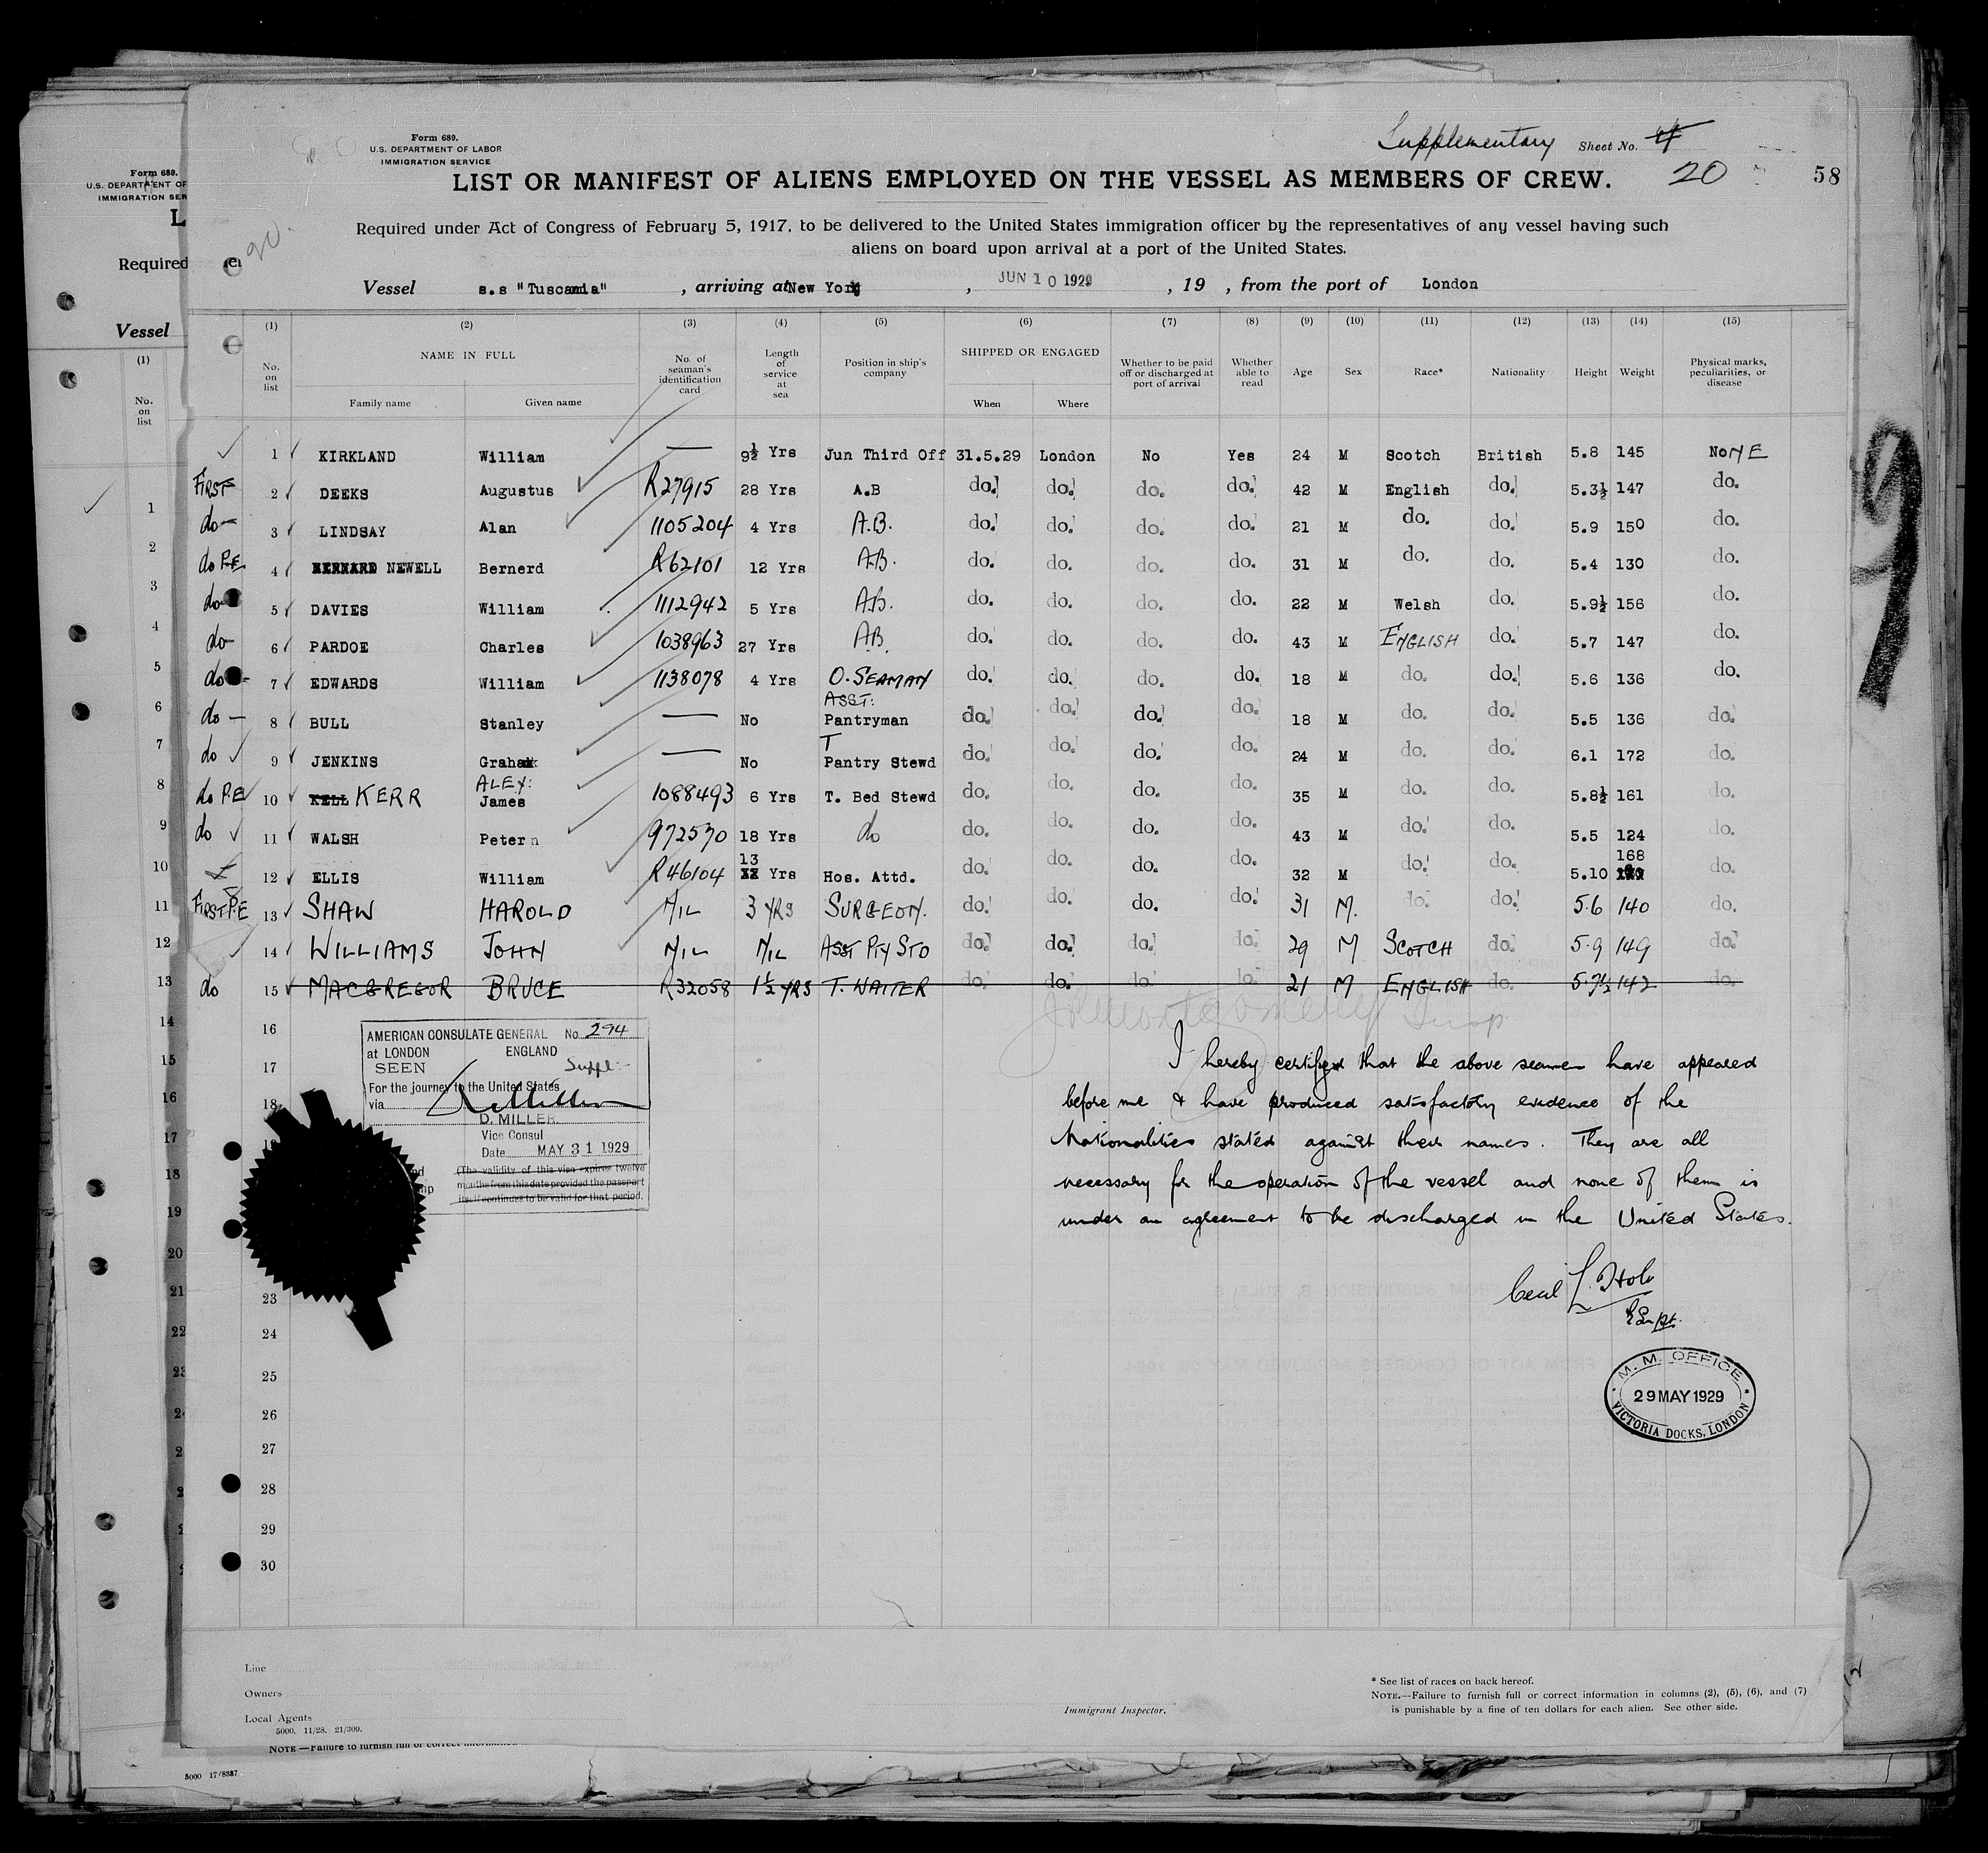 Form 680.
U.S. DEPARTMENT OF LABOR
IMMIGRATION SERVICE
Supplementary Sheet No. 4
20
58
LIST OR MANIFEST OF ALIENS EMPLOYED ON THE VESSEL AS MEMBERS OF CREW.
Required under Act of Congress of February 5, 1917, to be delivered to the United States immigration officer by the representatives of any vessel having such
aliens on board upon arrival at a port of the United States.
Vessel s.s "Tuscania" , arriving at New York , JUN 10 1929 , 19 , from the port of London
(1) (2) (3) (4) (5) (6) (7) (8) (9) (10) (11) (12) (13) (14) (15)
No. on list NAME IN FULL Family name Given name No. of seaman's identification card Length of service at sea Position in ship's company SHIPPED OR ENGAGED When Where Whether to be paid off or discharged at port of arrival Whether able to read Age Sex Race* Nationality Height Weight Physical marks, peculiarities, or disease
1 KIRKLAND William — 9½ Yrs Jun Third Off 31.5.29 London No Yes 24 M Scotch British 5.8 145 NONE
FIRST 2 DEEKS Augustus R27915 28 Yrs A.B do. do. do. do. 42 M English do. 5.3½ 147 do.
do 3 LINDSAY Alan 1105204 4 Yrs A.B. do. do. do. do. 21 M do. do. 5.9 150 do.
do P.E 4 BERNARD NEWELL Bernerd R62101 12 Yrs A.B. do. do. do. do. 31 M do. do. 5.4 130 do.
do 5 DAVIES William 1112942 5 Yrs A.B. do. do. do. do. 22 M Welsh do. 5.9½ 156 do.
do 6 PARDOE Charles 1038963 27 Yrs AB. do. do. do. do. 43 M ENGLISH do. 5.7 147 do.
do 7 EDWARDS William 1138078 4 Yrs O. SEAMAN do. do. do. do. 18 M do. do. 5.6 136 do.
do — 8 BULL Stanley — No ASST: Pantryman do. do. do. do. 18 M do. do. 5.5 136 do.
do 9 JENKINS Graham — No T Pantry Stewd do. do. do. do. 24 M do. do. 6.1 172 do.
do P.E 10 KELL KERR ALEX: James 1088493 6 Yrs T. Bed Stewd do. do. do. do. 35 M do. do. 5.8½ 161 do.
do 11 WALSH Peter n 972570 18 Yrs do do. do. do. do. 43 M do. do. 5.5 124 do.
12 ELLIS William R46104 13 Yrs Hos. Attd. do. do. do. do. 32 M do. do. 5.10 168 do.
FIRST P.E 13 SHAW HAROLD NIL 3 YRS SURGEON. do. do. do. do. 31 M. do. do. 5.6 140 do.
14 WILLIAMS JOHN NIL NIL ASST PTY STD do. do. do. do. 29 M SCOTCH do. 5.9 149 do.
do 15 MACGREGOR BRUCE R32058 1½ YRS T. WAITER do. do. do. do. 21 M ENGLISH do. 5.7½ 142 do.
16
17
18
19
23
24
25
26
27
28
29
30
AMERICAN CONSULATE GENERAL No. 294
at LONDON ENGLAND
SEEN Suppl:-
For the journey to the United States
via
D. MILLER.
Vice Consul
Date MAY 31 1929
(The validity of this visa expires twelve
months from this date provided the passport
itself continues to be valid for that period.
I hereby certify that the above seamen have appeared
before me & have produced satisfactory evidence of the
Nationalities stated against their names. They are all
necessary for the operation of the vessel and none of them is
under an agreement to be discharged in the United States.
Cecil L. Hole
M. M. OFFICE
29 MAY 1929
VICTORIA DOCKS, LONDON
Line
Owners
Local Agents
5000. 11/28. 21/309.
Immigrant Inspector.
* See list of races on back hereof.
NOTE.—Failure to furnish full or correct information in columns (2), (5), (6), and (7)
is punishable by a fine of ten dollars for each alien. See other side.
Form 680.
U.S. DEPARTMENT OF
IMMIGRATION SER
L
Required
Vessel
(1)
No. on list
1
2
3
4
5
6
7
8
9
10
11
12
13
14
15
16
17
18
19
20
21
22
23
NOTE.—Failure to furnish full or correct
5000 17/8387